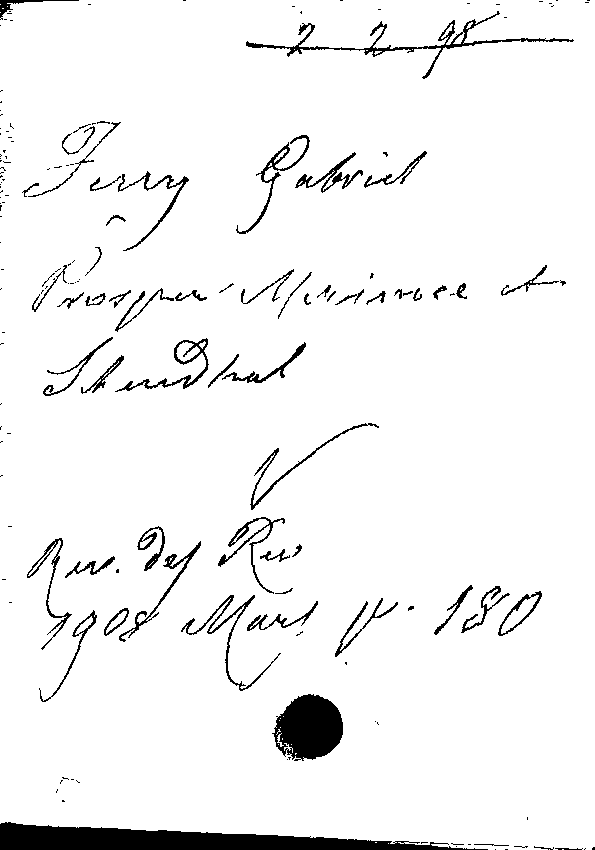 2 2 98
Ferry Gabriel
Prosper Merimee et
Stendhal
Rev. des Rev
1908 Mars p. 180